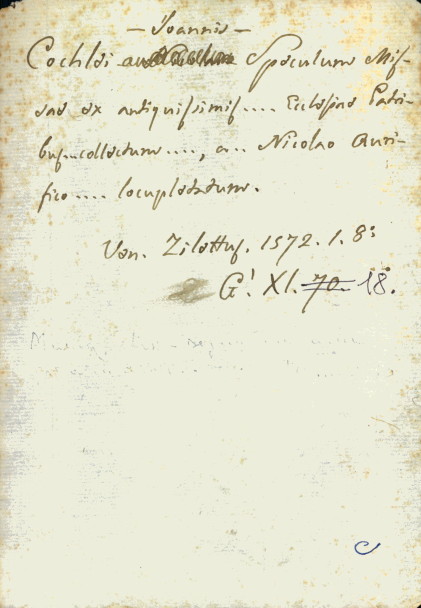 — Joannis —
Cochlæi Speculum Mis-
sae ex antiquissimis.... Ecclesiae Patri-
bus collectum...., a... Nicolao Auri-
fico.... locupletatum.
Ven. Zilettus. 1572. 1. 8:
G! XI. 70. 18.